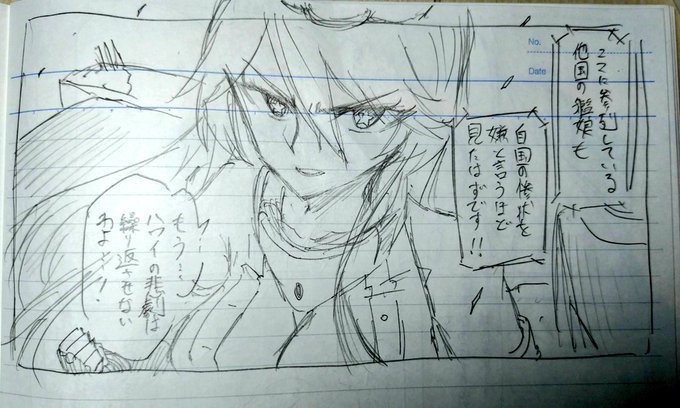 No.
Date
ここに参列している
他国の艦娘も
自国の惨状を
嫌と言うほど
見たはずです!!
もう…
ハワイの悲劇は
繰り返させない
わよ…!